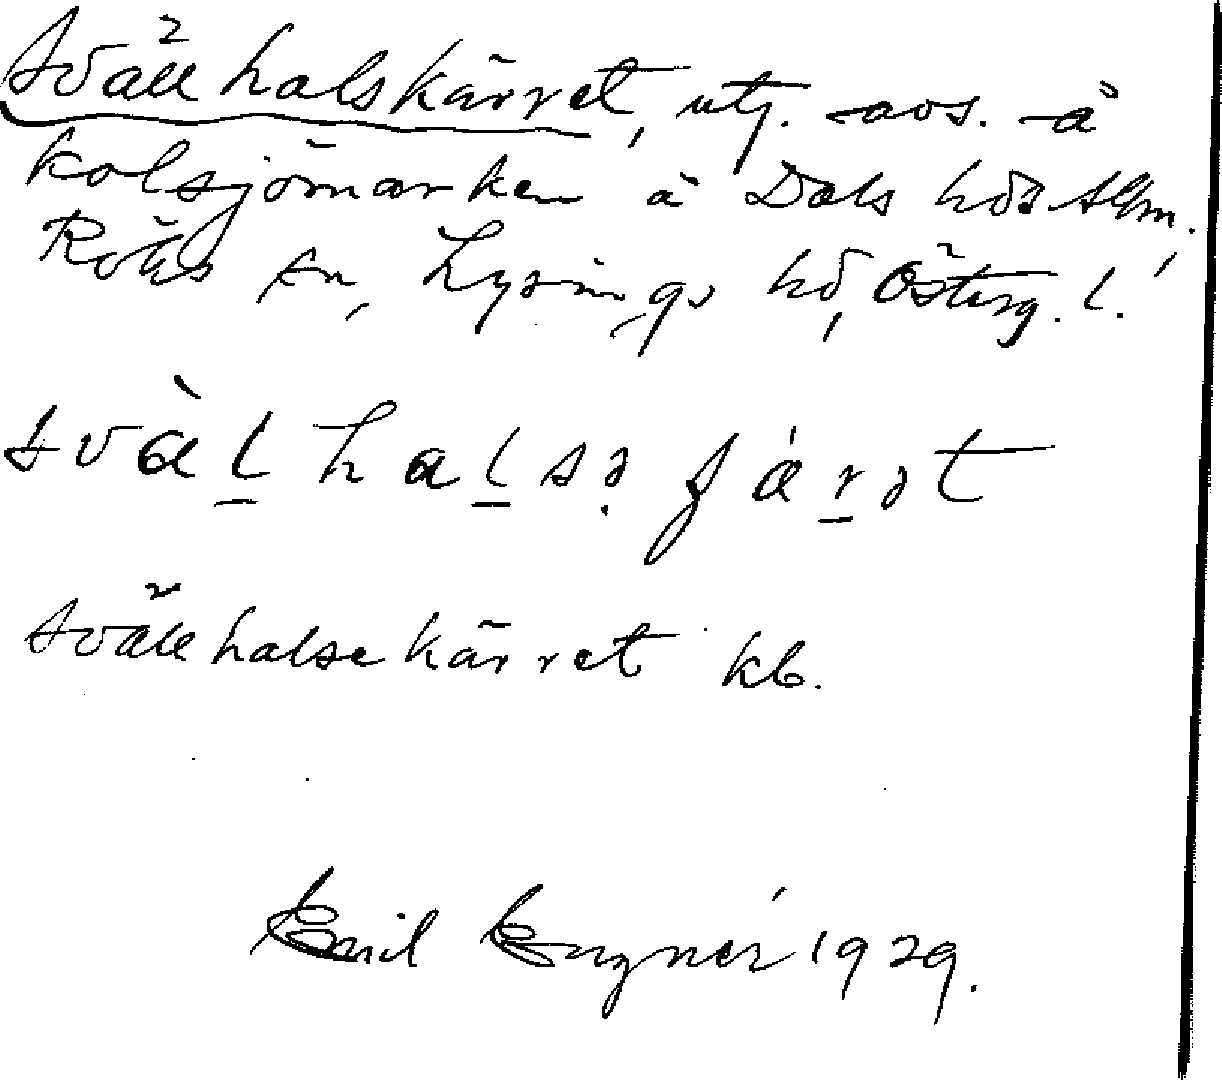 Svällhalskärret, utj. avs. å
Kolsjömarken å Dals hds allm.
Röks sn, Lysings hd, Österg. l.
svàlhalsəʃárət
Svällhalsekärret kb.
Emil 1929.